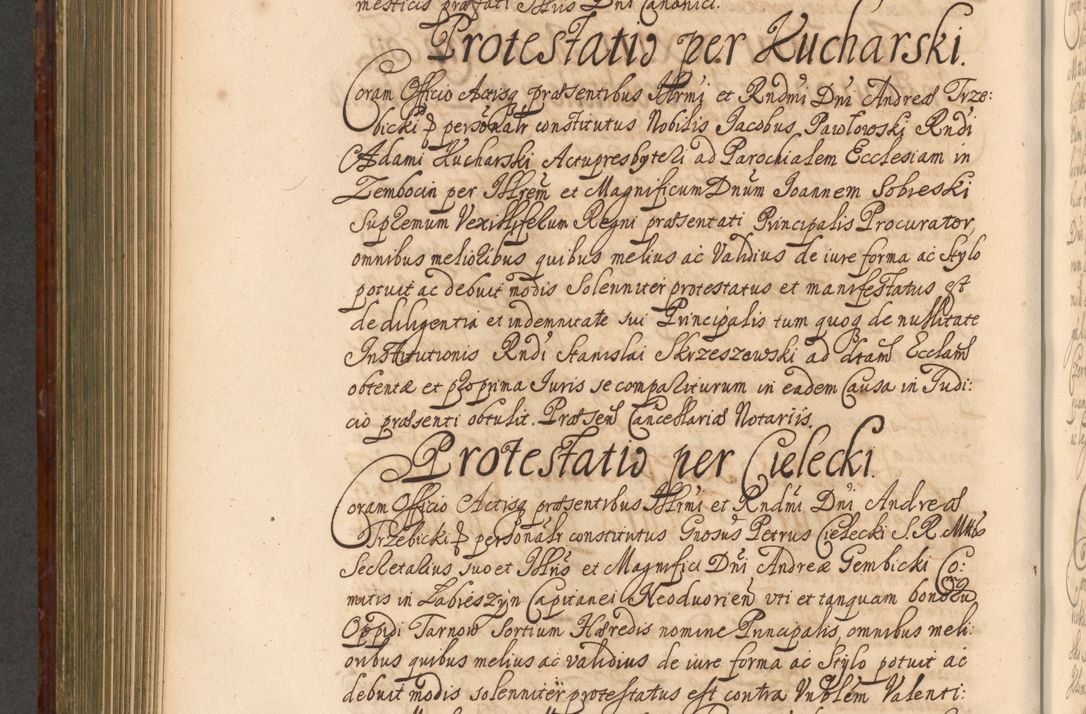 mesticis præfati Illris Dni Canonici.
Protestatio per Kucharski.
Coram Officio Actisq præsentibus Illrmi et Rndmi Dni Andreæ Trze:
bicki p personalr constitutus Nobilis Jacobus Pawlowski Rndi
Adami Kucharski Actu presbyteri ad Parochialem Ecclesiam in
Zembocin per Illrem et Magnificum Dnum Joannem Sobieski
Supremum Vexilliferum Regni præsentati Principalis Procurator,
omnibus melioribus quibus melius ac Validius de iure forma ac stylo
potuit ac debuit modis Solenniter protestatus et manifestatus est
de diligentia et indemnitate sui Principalis tum quoq de nullitate
Institutionis Rndi Stanislai Skrzeszewski ad dtam Ecclam
obtentæ et pro prima Juris se compariturum in eadem Causa in Judi:
cio præsenti obtulit. Præsen Cancellariæ Notariis.
Protestatio per Cielecki.
Coram Officio Actisq præsentibus Illrmi et Rndmi Dni Andreæ
Trzebicki p personalr constitutus Gnosus Petrus Cielecki S. R. Mttis
Secretarius suo et Illris et Magnifici Dni Andreæ Gembicki Co:
mitis in Labieszyn Capitanei Neoduorien uti et tanquam bonoru
Oppidi Tarnow Sortium Hæredis nomine Principalis, omnibus meli:
oribus quibus melius ac validius de iure forma ac Stylo potuit ac
debuit modis solenniter protestatus est contra Vnblem Valenti: